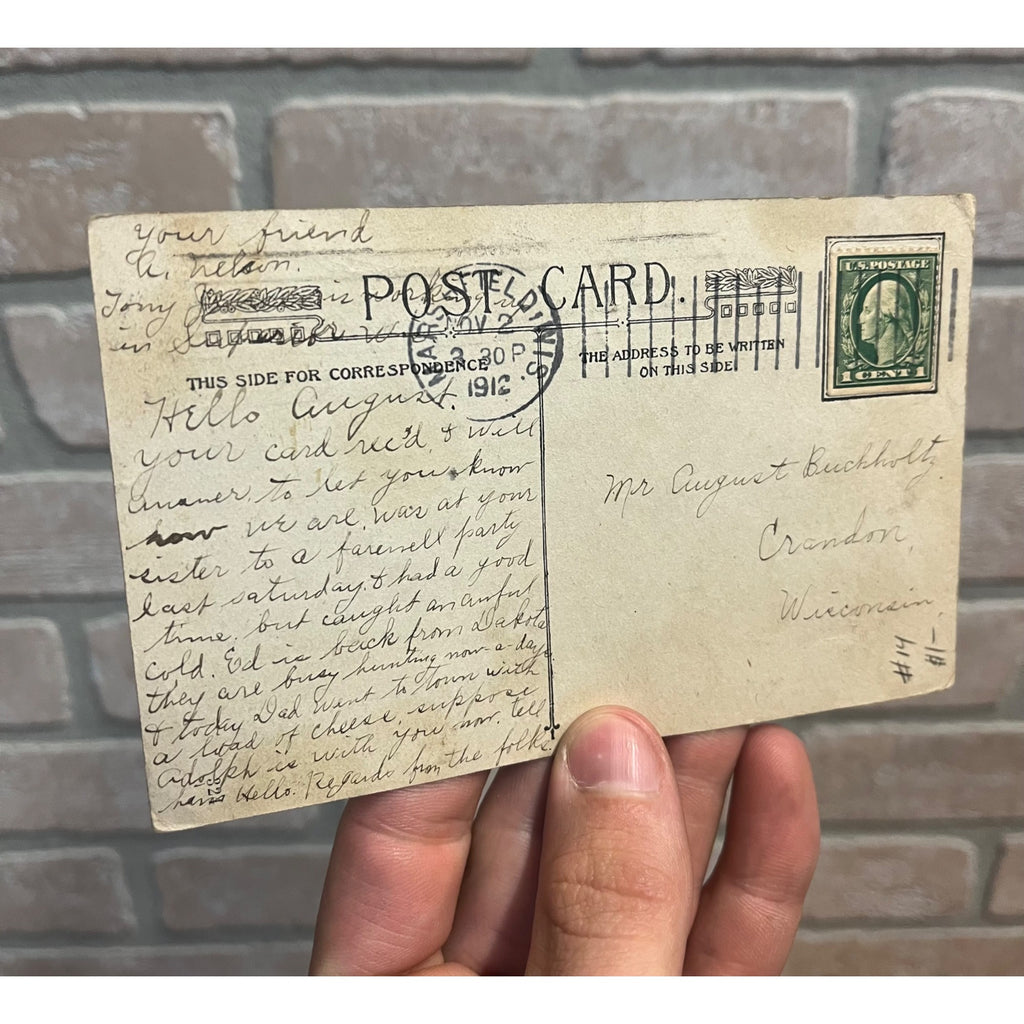 your friend
A. Nelson.
Tony is working
in Superior W
POST CARD.
THIS SIDE FOR CORRESPONDENCE
THE ADDRESS TO BE WRITTEN
ON THIS SIDE
MARSHFIELD, WIS.
NOV 2
3 30 P
1912
U.S. POSTAGE
1 CENT 1
Hello August.
your card rec'd, & will
answer, to let you know
how we are, was at your
sister to a farewell party
last saturday, & had a good
time. but caught an awful
cold. Ed is back from Dakota
they are busy hunting now-a-days
& today Dad went to town with
a load of cheese. suppose
Adolph is with you now. tell
him Hello. Regards from the folks.
Mr August Buchholtz.
Crandon,
Wisconsin.
#14
1-